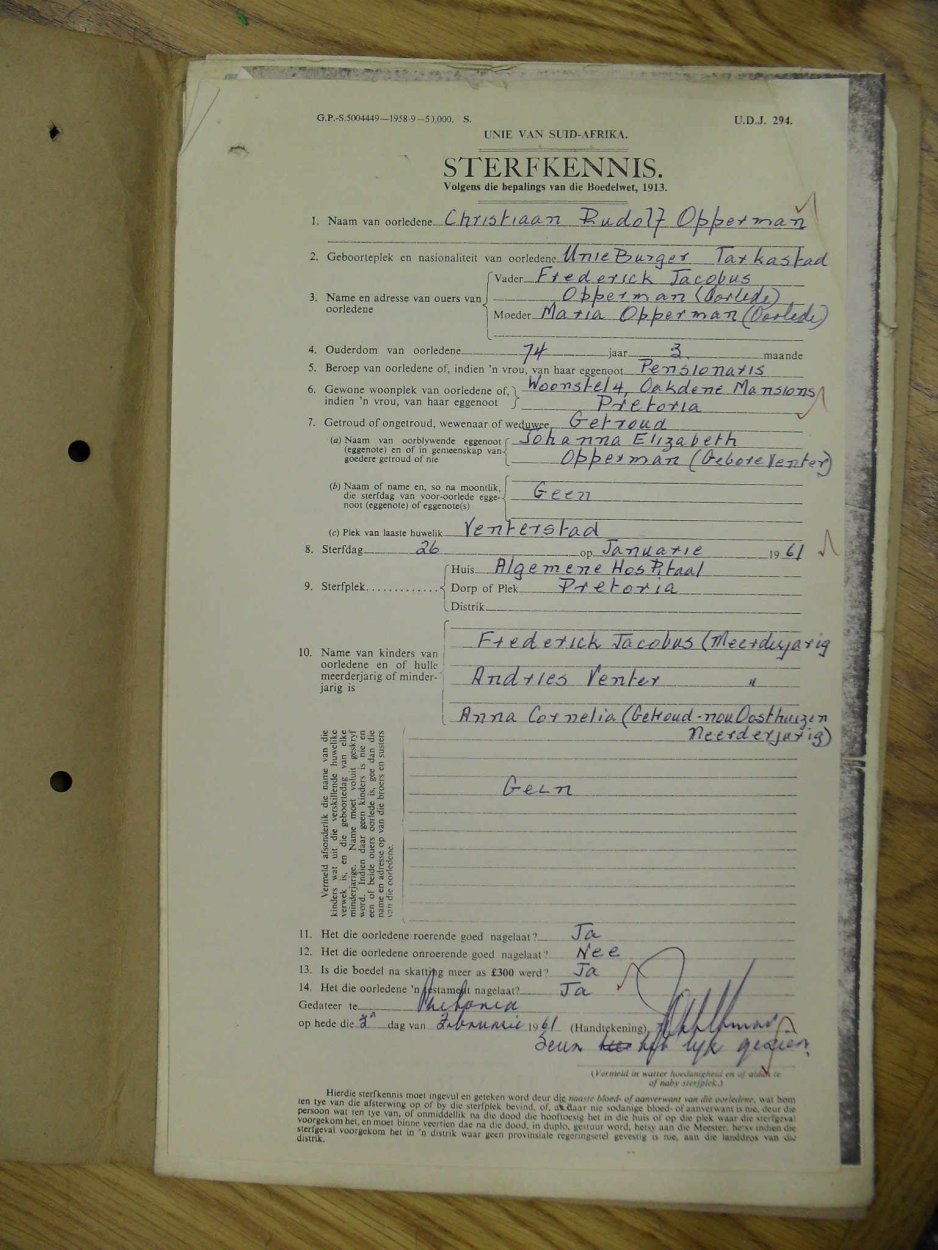 G.P.-S.5004449—1958-9—50,000. S. U.D.J. 294.
UNIE VAN SUID-AFRIKA.
STERFKENNIS.
Volgens die bepalings van die Boedelwet, 1913.
1. Naam van oorledene Christiaan Rudolf Opperman
2. Geboorteplek en nasionaliteit van oorledene Unie Burger Tarkastad
3. Name en adresse van ouers van oorledene
Vader Frederick Jacobus
Opperman (Oorlede)
Moeder Maria Opperman (Oorlede)
4. Ouderdom van oorledene 74 jaar 3 maande
5. Beroep van oorledene of, indien 'n vrou, van haar eggenoot Pensionaris
6. Gewone woonplek van oorledene of, Woonstel 4, Oakdene Mansions
indien 'n vrou, van haar eggenoot Pretoria
7. Getroud of ongetroud, wewenaar of weduwee Getroud
(a) Naam van oorblywende eggenoot Johanna Elizabeth
(eggenote) en of in gemeenskap van
goedere getroud of nie Opperman (Gebore Venter)
(b) Naam of name en, so na moontlik,
die sterfdag van voor-oorlede egge- Geen
noot (eggenote) of eggenote(s)
(c) Plek van laaste huwelik Venterstad
8. Sterfdag 26 op Januarie 1961
9. Sterfplek
Huis Algemene Hospitaal
Dorp of Plek Pretoria
Distrik
10. Name van kinders van
oorledene en of hulle
meerderjarig of minder-
jarig is
Frederick Jacobus (Meerderjarig
Andries Venter "
Anna Cornelia (Getroud-nou Oosthuizen
Meerderjarig)
Vermeld afsonderlik die name van die
kinders wat uit die verskillende huwelike
verwek is, en die geboortedag van elke
minderjarige. Name moet voluit geskryf
word. Indien daar geen kinders is nie en
een of beide ouers oorlede is, gee dan die
name en adresse op van die broers en susters
van die oorledene.
Geen
11. Het die oorledene roerende goed nagelaat? Ja
12. Het die oorledene onroerende goed nagelaat? Nee
13. Is die boedel na skatting meer as £300 werd? Ja
14. Het die oorledene 'n testament nagelaat? Ja
Gedateer te Pretoria
op hede die dag van Februarie 1961 (Handtekening)
Seun het lyk gesien.
(Vermeld in watter hoedanigheid en of aldan te
of naby sterfplek.)
Hierdie sterfkennis moet ingevul en geteken word deur die naaste bloed- of aanverwant van die oorledene, wat hom
ten tye van die afsterwing op of by die sterfplek bevind, of, as daar nie sodanige bloed- of aanverwant is nie, deur die
persoon wat ten tye van, of onmiddellik na die dood die hooftoesig het in die huis of op die plek waar die sterfgeval
voorgekom het, en moet binne veertien dae na die dood, in duplo, gestuur word, hetsy aan die Meester, hetsy indien die
sterfgeval voorgekom het in 'n distrik waar geen provinsiale regeringsetel gevestig is nie, aan die landdros van die
distrik.